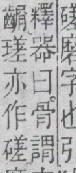 磨字也引
釋器曰骨謂
瑳亦作磋